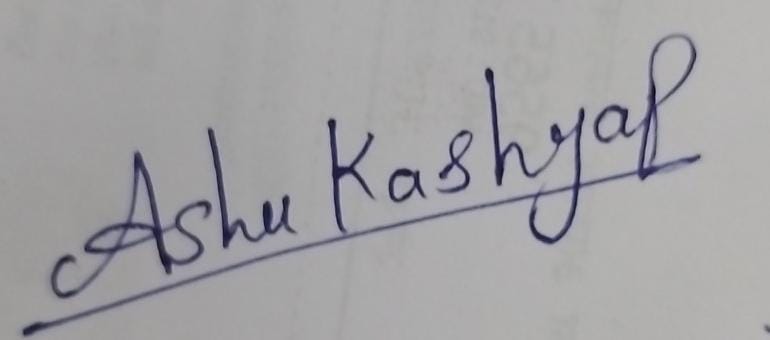 Ashu Kashyap